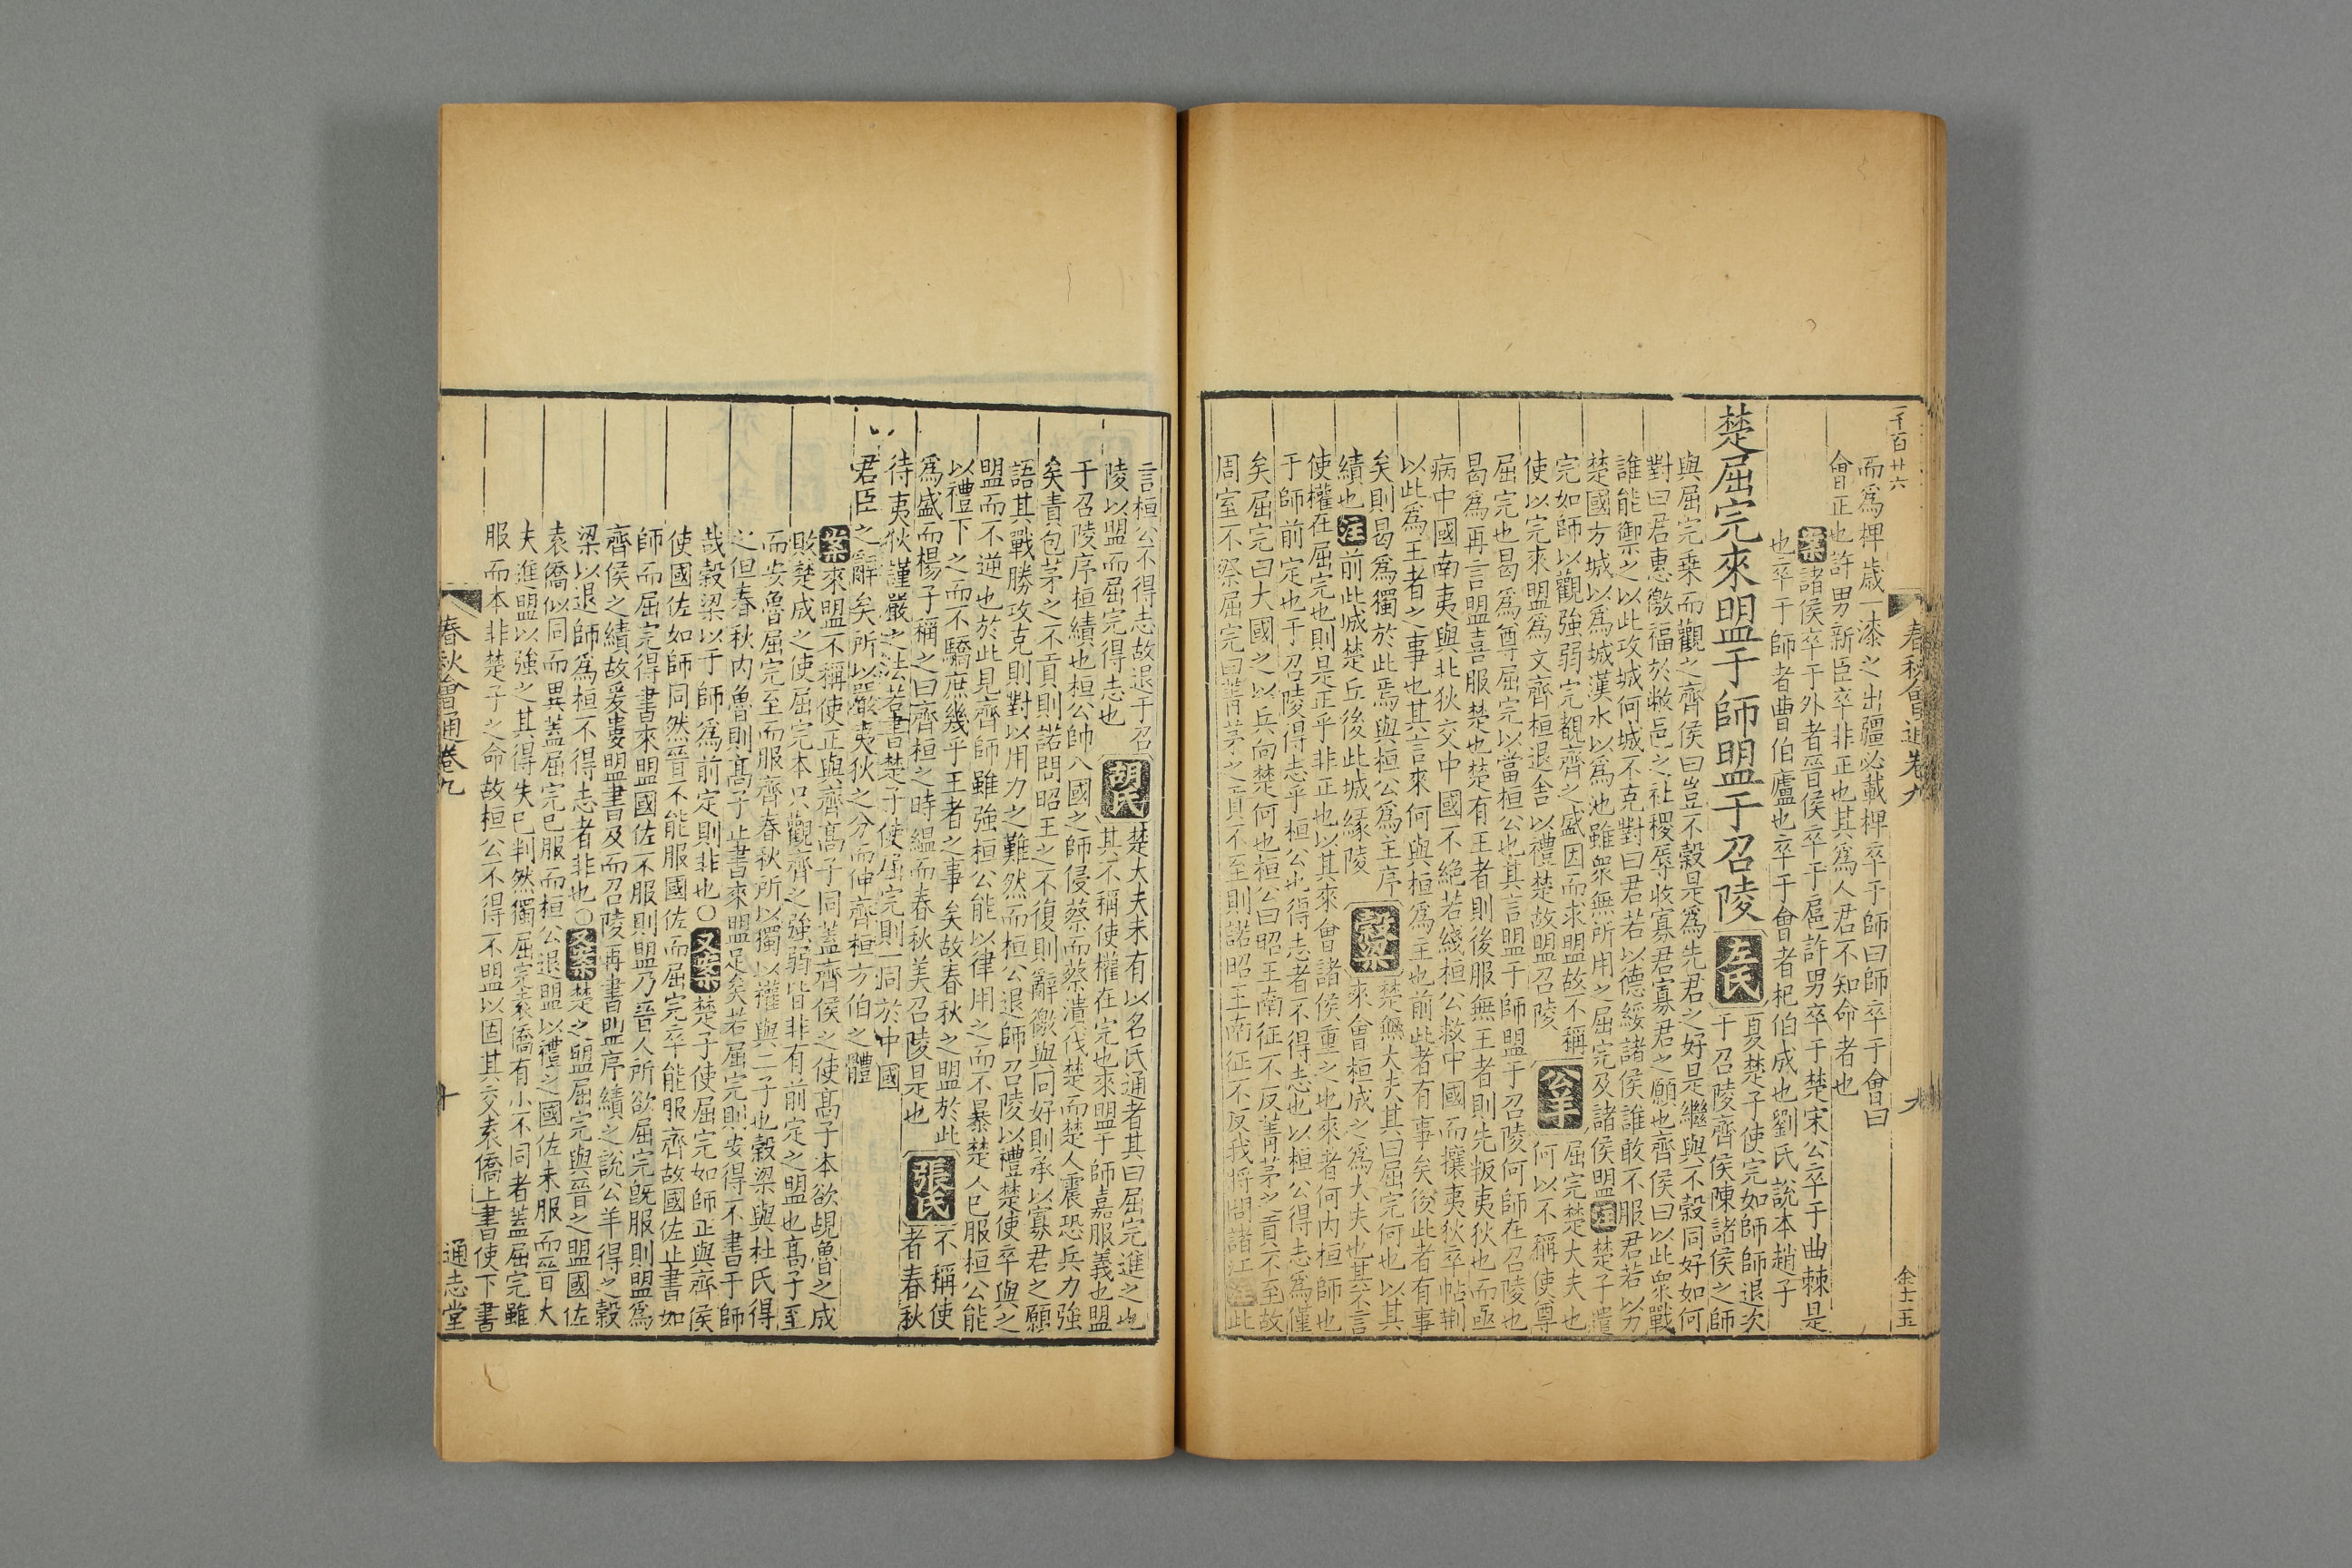 一千百廿六
春秋會通卷九
九
余士玉
而爲椑歲一漆之出疆必載椑卒于師曰師卒于會曰
會正也許男新臣卒非正也其爲人君不知命者也
案諸侯卒于外者晉侯卒于扈許男卒于楚宋公卒于曲棘是
也卒于師者曹伯廬也卒于會者杞伯成也劉氏説本趙子
楚屈完來盟于師盟于召陵
左氏
夏楚子使完如師師退次
于召陵齊侯陳諸侯之師
與屈完乗而觀之齊侯曰豈不穀是爲先君之好是繼與不穀同好如何
對曰君惠徼福於敝邑之社稷辱收寡君寡君之願也齊侯曰以此衆戰
誰能禦之以此攻城何城不克對曰君若以德綏諸侯誰敢不服君若以力
楚國方城以爲城漢水以爲池雖衆無所用之屈完及諸侯盟注楚子遣
完如師以觀強弱完覩齊之盛因而求盟故不稱
使以完來盟爲文齊桓退舍以禮楚故盟召陵
公羊
屈完楚大夫也
何以不稱使尊
屈完也曷爲尊屈完以當桓公也其言盟于師盟于召陵何師在召陵也
曷爲再言盟喜服楚也楚有王者則後服無王者則先叛夷狄也而亟
病中國南夷與北狄交中國不絶若綫桓公救中國而攘夷狄卒帖荆
以此爲王者之事也其言來何與桓爲主也前此者有事矣後此者有事
矣則曷爲獨於此焉與桓公爲主序
績也注前此城楚丘後此城緣陵
穀梁
楚無大夫其曰屈完何也以其
來會桓成之爲大夫也其不言
使權在屈完也則是正乎非正也以其來會諸侯重之也來者何内桓師也
于師前定也于召陵得志乎桓公也得志者不得志也以桓公得志爲僅
矣屈完曰大國之以兵向楚何也桓公曰昭王南征不反菁茅之貢不至故
周室不祭屈完曰菁茅之貢不至則諾昭王南征不反我將問諸江注此
言桓公不得志故退于召
陵以盟而屈完得志也
胡氏
楚大夫未有以名氏通者其曰屈完進之也
其不稱使權在完也來盟于師嘉服義也盟
于召陵序桓績也桓公帥八國之師侵蔡而蔡潰伐楚而楚人震恐兵力強
矣責包茅之不貢則諾問昭王之不復則辭徼與同好則承以寡君之願
語其戰勝攻克則對以用力之難然而桓公退師召陵以禮楚使卒與之
盟而不逆也於此見齊師雖強桓公能以律用之而不暴楚人已服桓公能
以禮下之而不驕庶幾乎王者之事矣故春秋之盟於此
爲盛而楊子稱之曰齊桓之時緼而春秋美召陵是也
張氏
不稱使
者春秋
待夷狄謹嚴之法若書楚子使屈完則一同於中國
君臣之辭矣所以嚴夷狄之分而伸齊桓方伯之體
案來盟不稱使正與齊髙子同蓋齊侯之使髙子本欲覘魯之成
敗楚成之使屈完本只觀齊之強弱皆非有前定之盟也髙子至
而安魯屈完至而服齊春秋所以獨以權與二子也穀梁與杜氏得
之但春秋内魯則髙子止書來盟足矣若屈完則安得不書于師
哉穀梁以于師爲前定則非也○又案楚子使屈完如師正與齊侯
使國佐如師同然晉不能服國佐而屈完卒能服齊故國佐止書如
師而屈完得書來盟國佐不服則盟乃晉人所欲屈完旣服則盟爲
齊侯之績故爰婁盟書及而召陵再書盟序績之説公羊得之穀
梁以退師爲桓不得志者非也○又案楚之盟屈完與晉之盟國佐
袁僑似同而異蓋屈完已服而桓公退盟以禮之國佐未服而晉大
夫進盟以強之其得失已判然獨屈完袁僑有小不同者蓋屈完雖
服而本非楚子之命故桓公不得不盟以固其交袁僑上書使下書
春秋會通卷九
十
通志堂